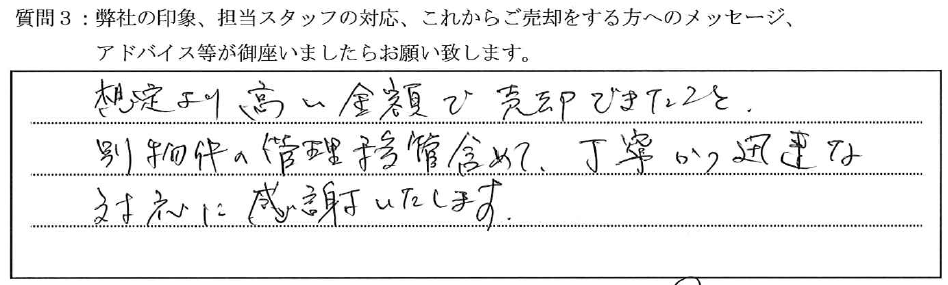 質問３：弊社の印象、担当スタッフの対応、これからご売却をする方へのメッセージ、
アドバイス等が御座いましたらお願い致します。
想定より高い金額で売却できたこと、
別物件の管理移管含めて、丁寧かつ迅速な
対応に感謝いたします。